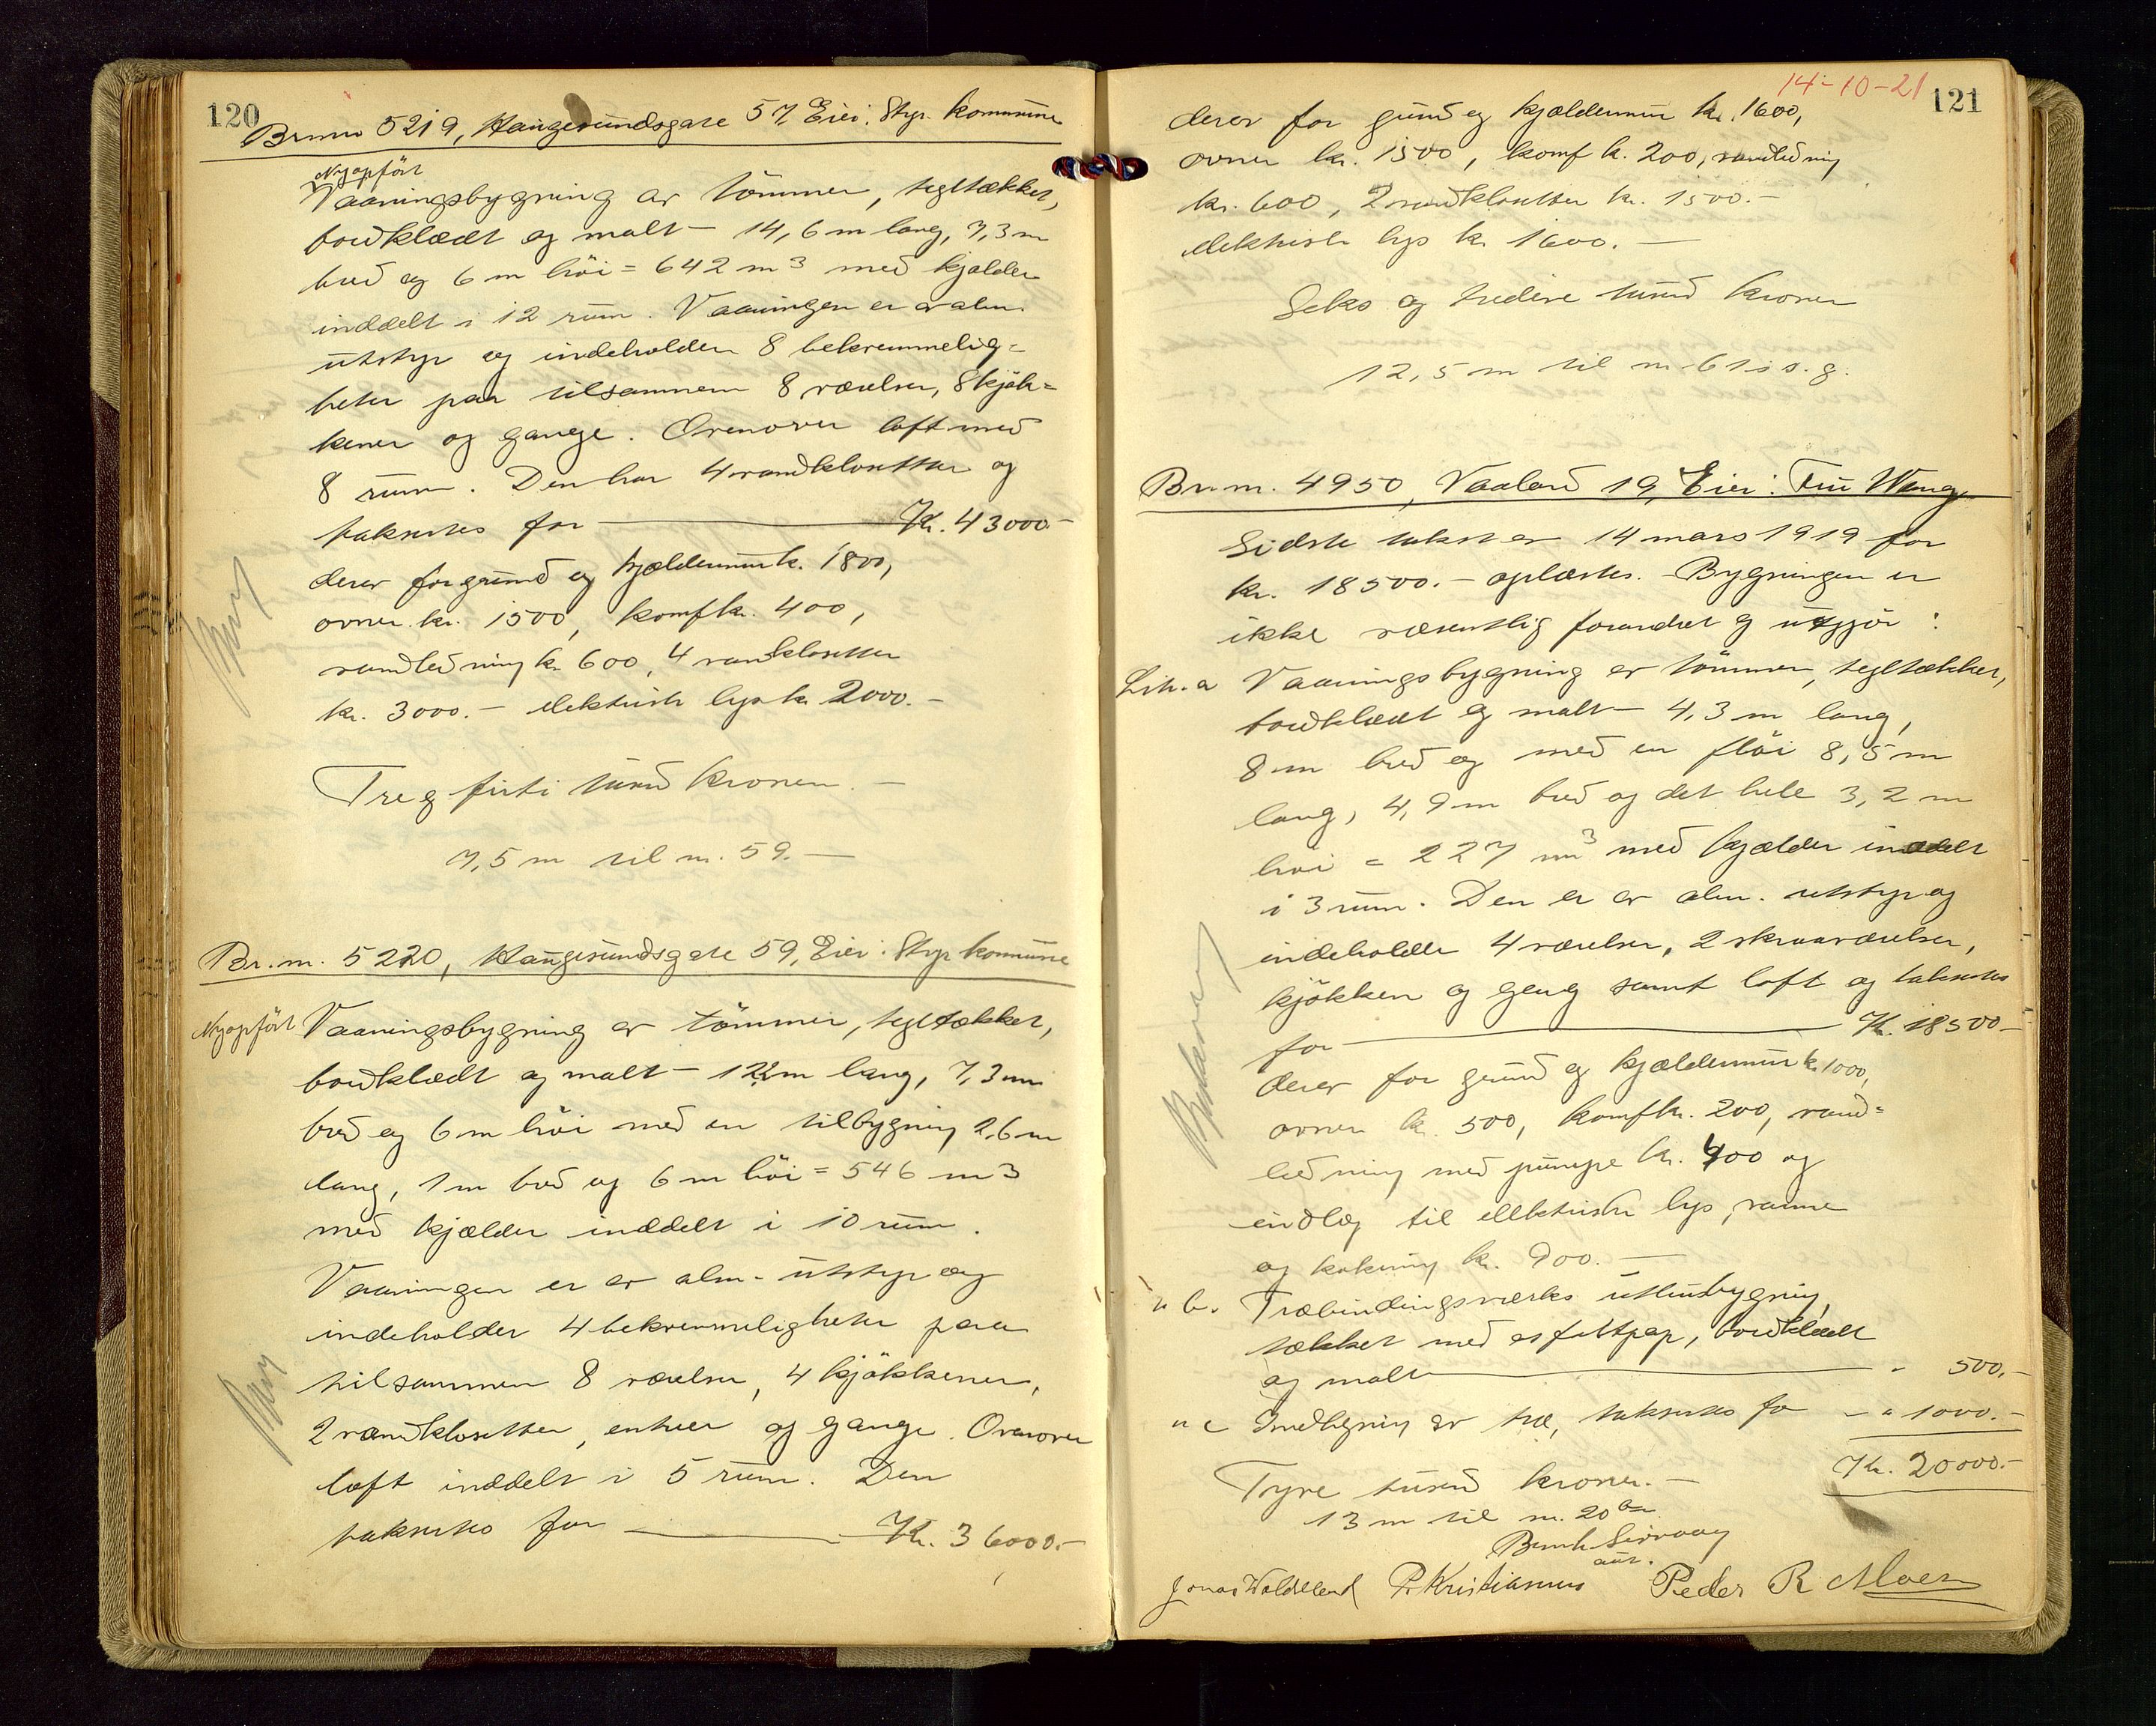 120
Brnm 5219, Haugesundsgate 57, Eier: Styr. kommune
Nyopført
Vaaningsbygning av tömmer, tegltækket,
bordklædt og malt - 14,6 m lang, 7,3 m
bred og 6 m höi = 642 m3 med kjelder
inddelt i 12 rum. Vaaningen er av alm.
utstyr og indeholder 8 bekvemmelig=
heter paa tilsammen 8 værelser, 8 kjök=
kener og gange. Ovenover loft med
8 rum. Den har 4 vandklosetter og
takseres for Kr. 43000.-
derav for grund og kjældermur k. 1800,
ovner kr. 1500, komf kr. 400,
vandledning k. 600, 4 vandklosetter
kr. 3000.- elektriske lys kr. 2000.-
Tre og firti tusind kroner.-
7,5 m til nr. 59.-
Br.nr. 5220, Haugesundsgate 59, Eier: Styr kommune
Nyopført Vaaningsbygning av tömmer, tegltækket,
bordklædt og malt - 12,2 m lang, 7,3 m
bred og 6 m höi med en tilbygning 2,6 m
lang, 1 m bred og 6 m höi = 546 m3
med kjælder inddelt i 10 rum.
Vaaningen er av alm. utstyr og
indeholder 4 bekvemmeligheter paa
tilsammen 8 værelser, 4 kjökkener,
2 vandklosetter, entreer og gange. Ovenover
loft inddelt i 5 rum. Den
takseres for Kr. 36000.-
14-10-21
121
derav for grund og kjældermur kr. 1600,
ovner kr. 1500, komf k. 200, vandledning
kr. 600, 2 vandklosetter kr. 1500.-
elektriske lys kr 1600.-
Seks og tredive tusind kroner
12,5 m til nr 61 i s. g.
Br.nr. 4950, Vaaland 19, Eier: Fru Wang
Sidste takst er 14 mars 1919 for
kr. 18500.- oplæstes. - Bygningen er
ikke væsentlig forandret og utgjör:
Lit. a Vaaningsbygning av tömmer, tegltækket,
bordklædt og malt - 4,3 m lang,
8 m bred og med en flöi 8,5 m
lang, 4,9 m bred og det hele 3,2 m
höi = 227 m3 med kjælder inddelt
i 3 rum. Den er av alm. utstyr og
indeholder 4 værelser, 2 skraaværelser,
kjökken og gang samt loft og takseres
for Kr. 18500.-
derav for grund og kjældermur k. 1000,
ovner k. 500, komf kr. 200, vand=
ledning med pumpe kr. 400 og
indlæg til elektriske lys, varme
og kokning kr. 900.-
" b. Træbindingsverks uthusbygning,
tækket med asfaltpap, bordklædt
og malt " 500.-
" c Indhegning av træ, takseres for - " 1000.-
Kr. 20000.-
Tyve tusind kroner.-
13 m til nr. 20
Bernh. Sirvaag
Jonas Waldeland P. Kristiansen Peder R Moen